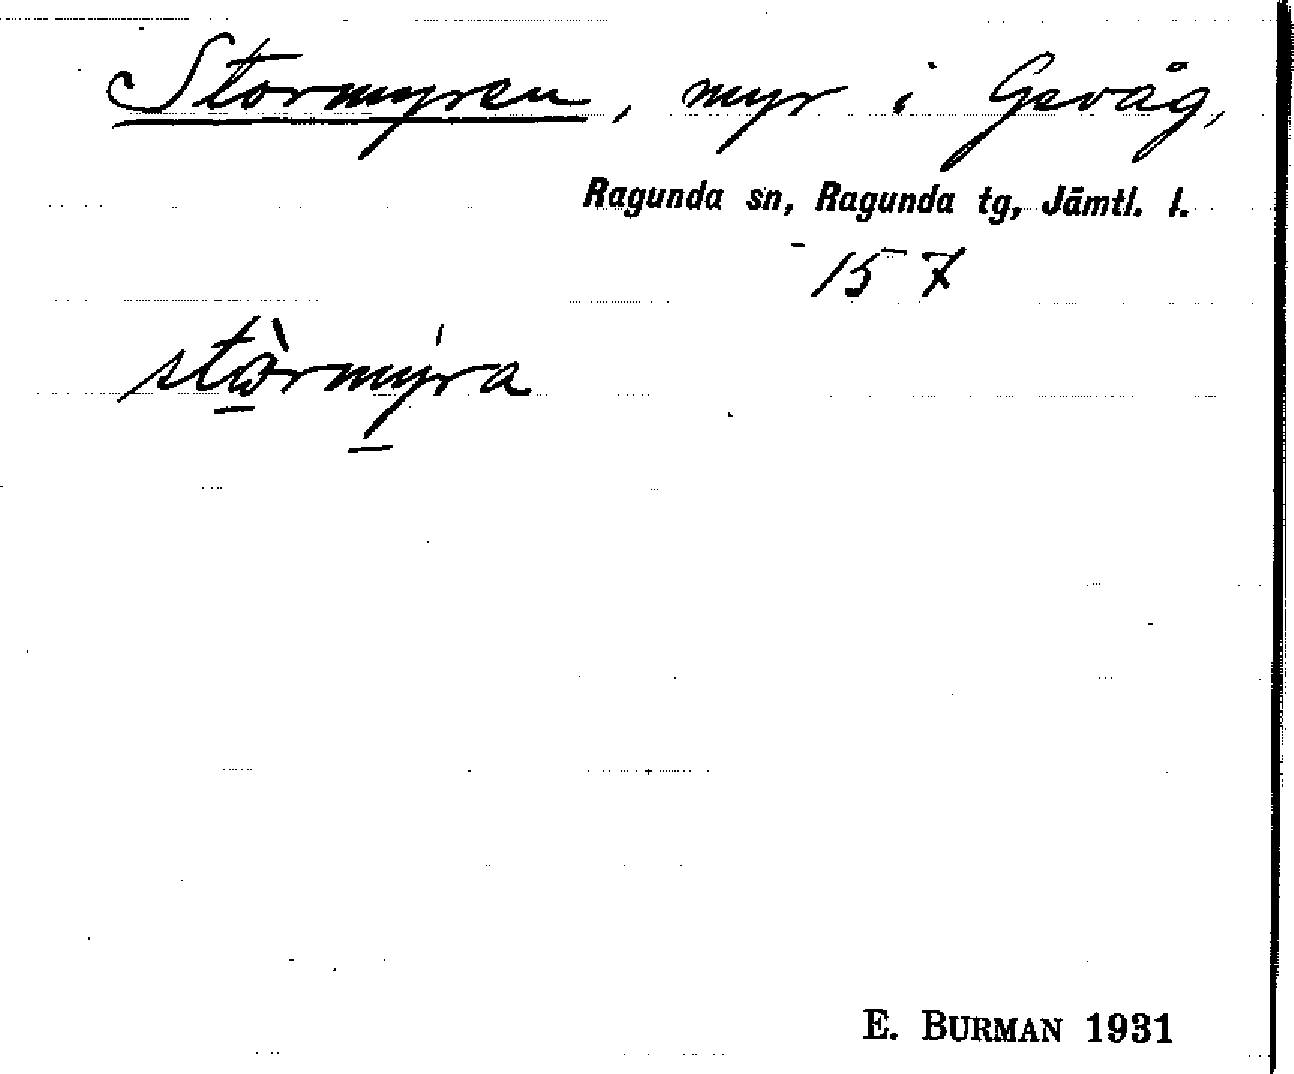 Stormyren, myr i Gevåg,
Ragunda sn, Ragunda tg, Jämtl. l.
157
stò̱rmý̱ra
E. BURMAN 1931